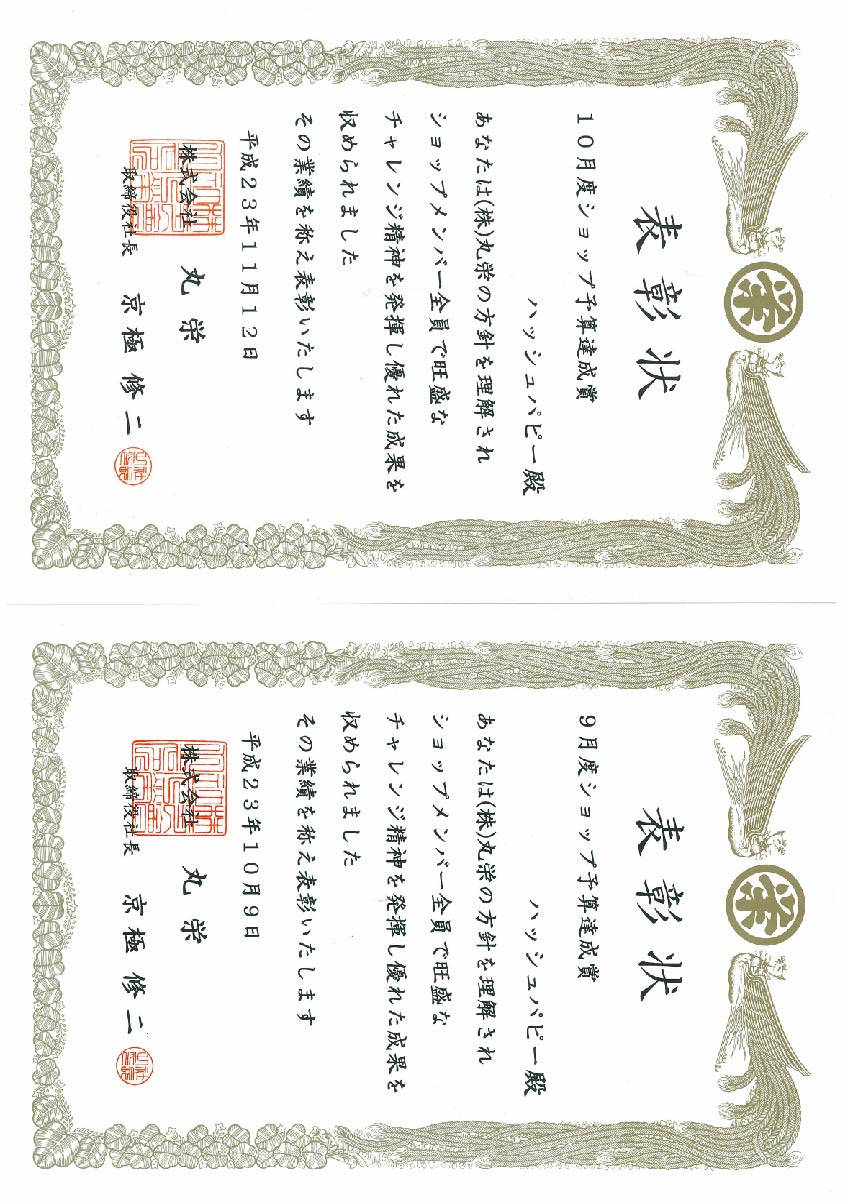 表彰状
10月度ショップ予算達成賞
ハッシュパピー殿
あなたは(株)丸栄の方針を理解され
ショップメンバー全員で旺盛な
チャレンジ精神を発揮し優れた成果を
収められました
その業績を称え表彰いたします
平成23年11月12日
株式会社 丸栄
取締役社長 京極修二
表彰状
9月度ショップ予算達成賞
ハッシュパピー殿
あなたは(株)丸栄の方針を理解され
ショップメンバー全員で旺盛な
チャレンジ精神を発揮し優れた成果を
収められました
その業績を称え表彰いたします
平成23年10月9日
株式会社 丸栄
取締役社長 京極修二